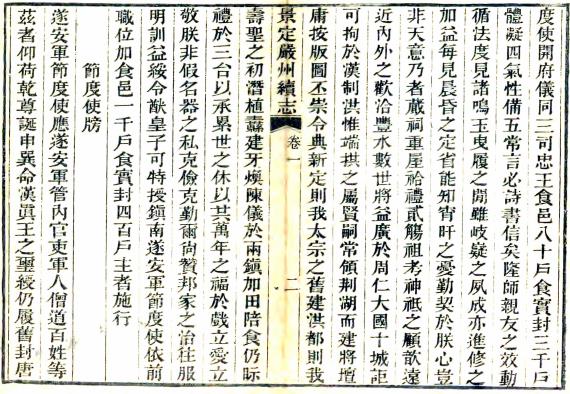 度使開府儀同三司忠王食邑八十戶食實封三千戶
體凝四氣性備五常言必詩書信矣隆師親友之效動
循法度見諸鳴玉曳履之間雖岐嶷之夙成亦進修之
加益每見晨昏之定省能知宵旰之憂勤契於朕心豈
非天意乃者蕆祠重屋祫禮貳觴祖考神祇之顧歆遠
近內外之歡洽豐水數世將益廣於周仁大國十城詎
可拘於漢制洪惟端拱之屬賢嗣常領荆湖而建將壇
庸按版圖丕崇令典新定則我太宗之舊建洪都則我
景定嚴州續志
卷一
二
壽聖之初潛植纛建牙煥陳儀於兩鎮加田陪食仍眎
禮於三台以承累世之休以其萬年之福於戲立愛立
敬朕非假名器之私克儉克勤爾尚贊邦家之治往服
明訓益綏令猷皇子可特授鎮南遂安軍節度使依前
職位加食邑一千戶食實封四百戶主者施行
節度使牓
遂安軍節度使應遂安軍管內官吏軍人僧道百姓等
茲者仰荷乾尊誕申巽命漢眞王之璽綬仍履舊封唐